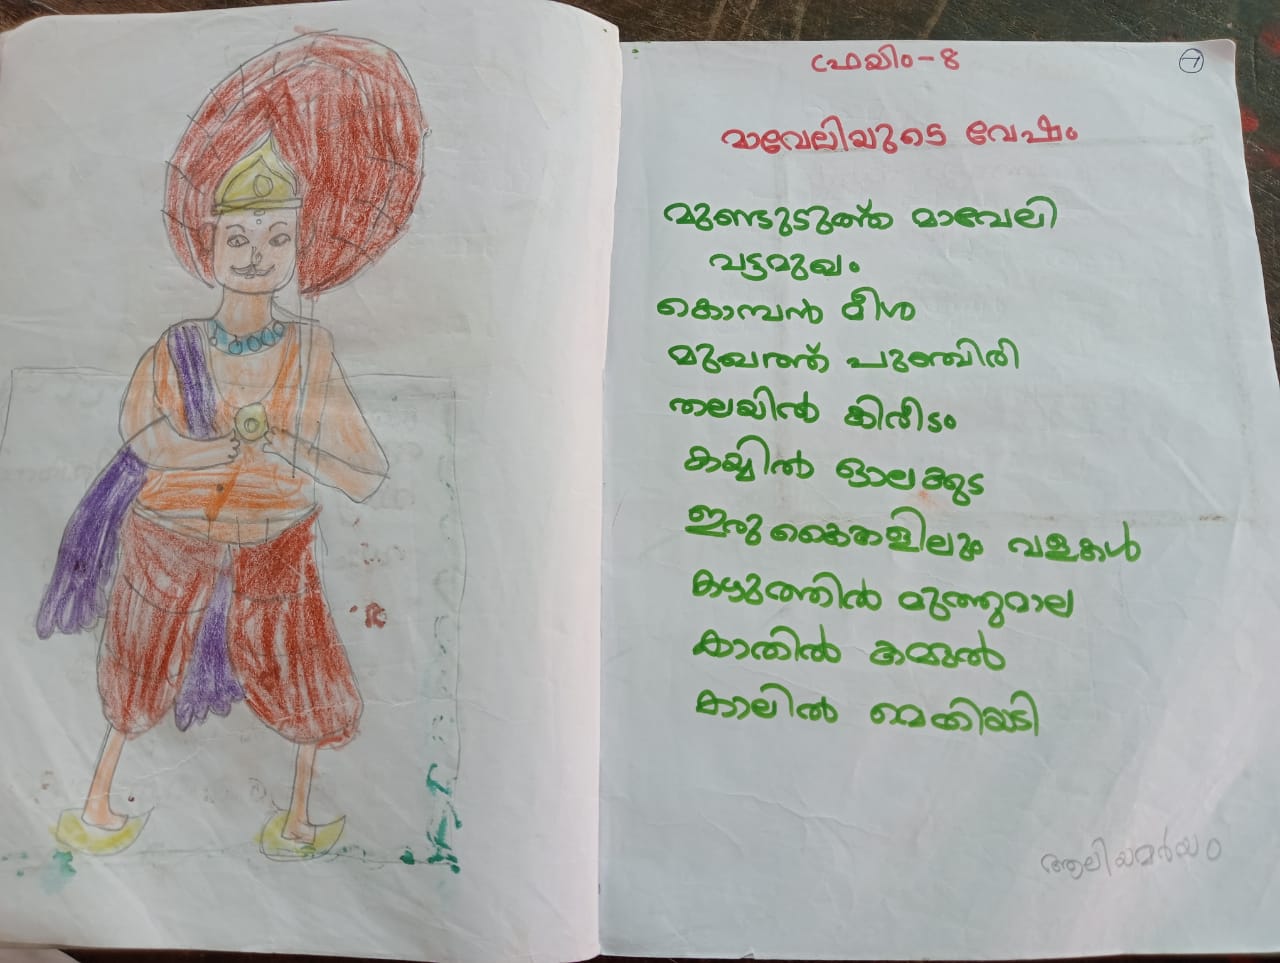 ഫ്രെയിം-8
7
മാവേലിയുടെ വേഷം
മുണ്ടുടുത്ത മാവേലി
വട്ടമുഖം
കൊമ്പൻ മീശ
മുഖത്ത് പുഞ്ചിരി
തലയിൽ കിരീടം
കയ്യിൽ ഓലക്കുട
ഇരു കൈകളിലും വളകൾ
കഴുത്തിൽ മുത്തുമാല
കാതിൽ കമ്മൽ
കാലിൽ മെതിയടി
ആലിയമർയം